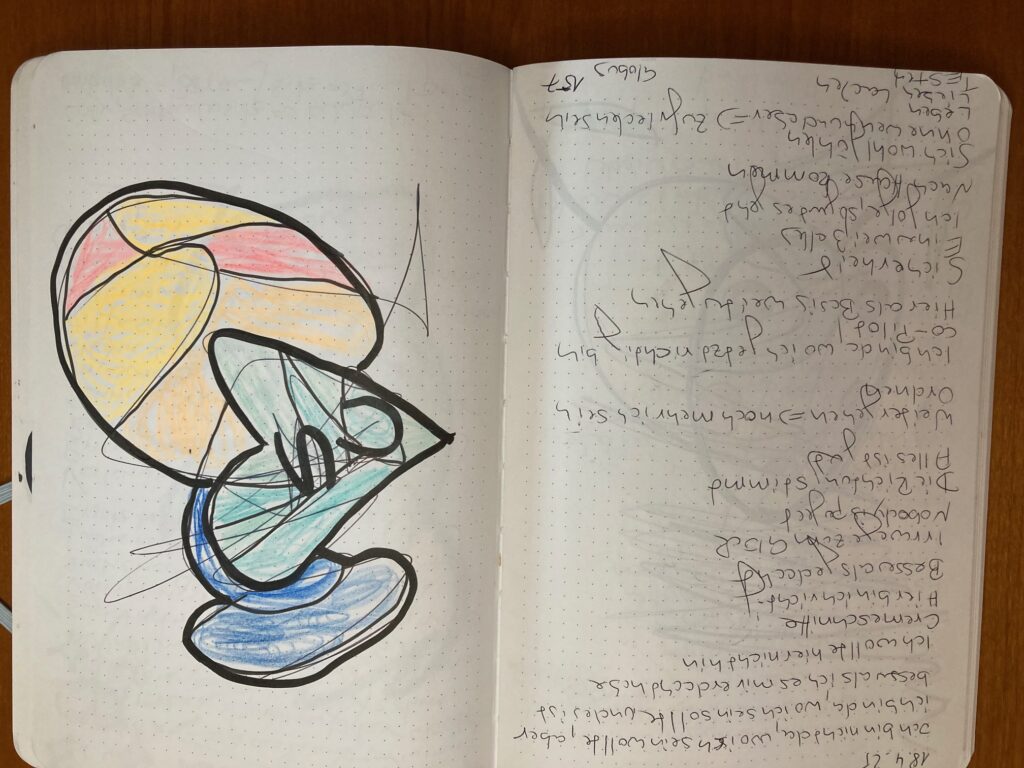 18.4.25
Ich bin nicht da, wo ich sein wollte, aber
ich bin da, wo ich sein sollte und es ist
besser als ich es mir erdacht habe
Ich wollte hier nicht hin
Cremeschnitte
Hier bin ich richt-
Besser als gedacht
Irrwege zum
Nobody's perfect
Die Richtung stimmt
Alles ist gut
Weitergehen => noch mehr ich sein
Ordnen
Ich bin da, wo ich jetzt nicht bin
Co-Pilot
Hier als Basis weitergehen
Sicherheit
Ich folge
Nach Hause kommen
Sich wohlfühlen
Ohne wenn und aber =>
Leben
Lieben Lachen
TESTEN
Globus 157